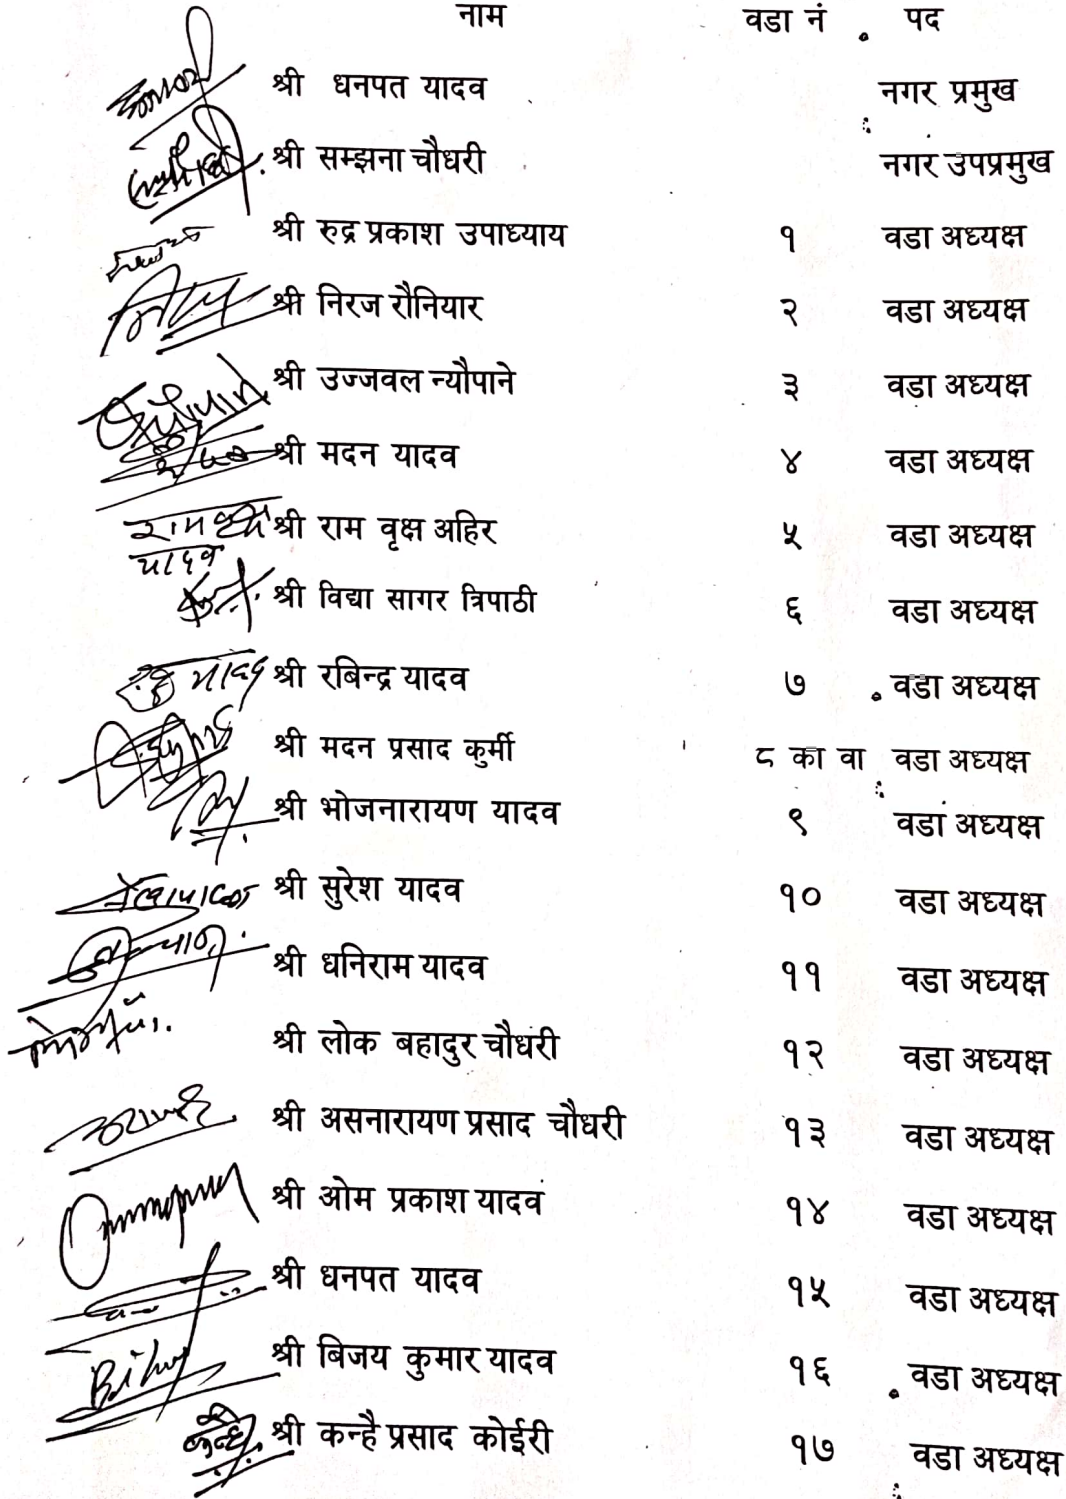 नाम वडा नं पद
श्री धनपत यादव नगर प्रमुख
श्री सम्झना चौधरी नगर उपप्रमुख
श्री रुद्र प्रकाश उपाध्याय १ वडा अध्यक्ष
श्री निरज रौनियार २ वडा अध्यक्ष
श्री उज्जवल न्यौपाने ३ वडा अध्यक्ष
श्री मदन यादव ४ वडा अध्यक्ष
श्री राम वृक्ष अहिर ५ वडा अध्यक्ष
यादव
श्री विद्या सागर त्रिपाठी ६ वडा अध्यक्ष
श्री रबिन्द्र यादव ७ वडा अध्यक्ष
श्री मदन प्रसाद कुर्मी ८ का वा वडा अध्यक्ष
श्री भोजनारायण यादव ९ वडा अध्यक्ष
श्री सुरेश यादव १० वडा अध्यक्ष
श्री धनिराम यादव ११ वडा अध्यक्ष
श्री लोक बहादुर चौधरी १२ वडा अध्यक्ष
श्री असनारायण प्रसाद चौधरी १३ वडा अध्यक्ष
श्री ओम प्रकाश यादव १४ वडा अध्यक्ष
श्री धनपत यादव १५ वडा अध्यक्ष
श्री बिजय कुमार यादव १६ वडा अध्यक्ष
श्री कन्है प्रसाद कोईरी १७ वडा अध्यक्ष